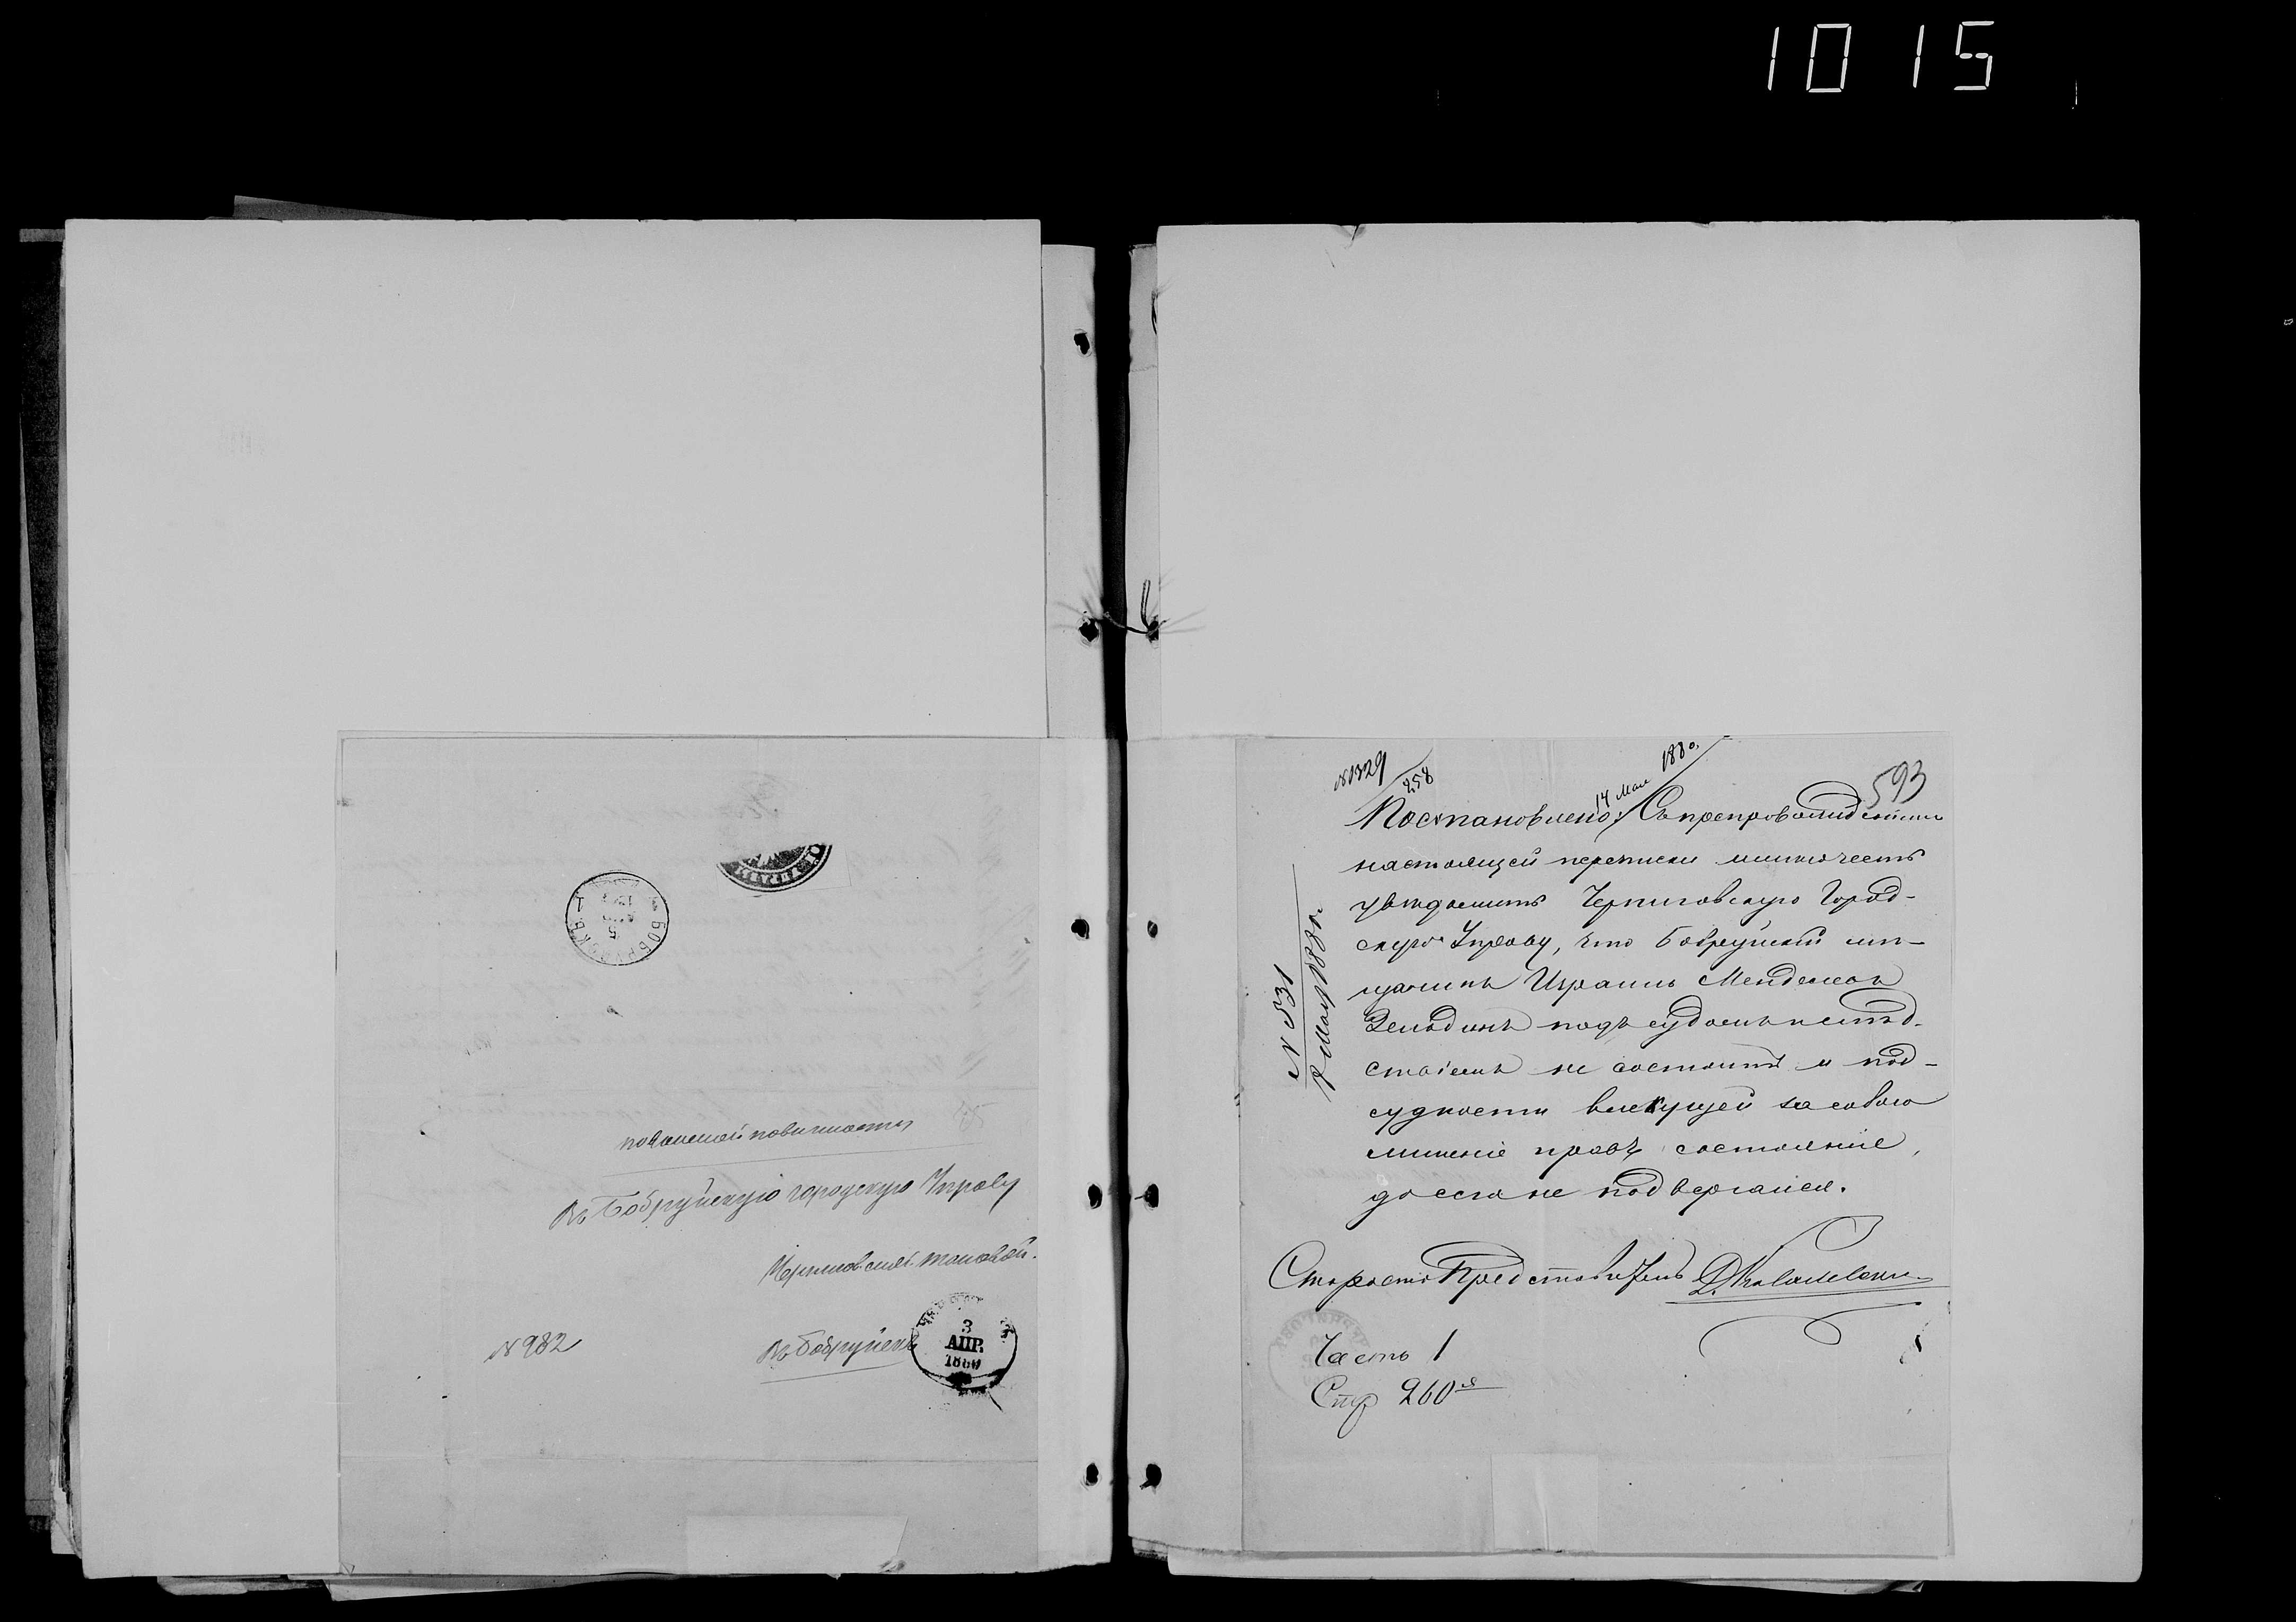 1015
по воинской повинности
Въ Бобруйскую городскую Управу
Черниговской таковой.
№ 982
въ Бобруйскъ
3
АПР.
1880
5
1
№ 1329
258
14 Мая 1880,
593
№ 531
7 Мая 1880 г.
Постановлено: Съ препровожденіемъ
настоящей переписки имѣю честь
увѣдомить Черниговскую Город-
скую Управу, что Бобруйскій мѣ-
щанинъ Израиль Менделевъ
Зельдинъ подъ судомъ и слѣд-
ствіемъ не состоитъ и под-
судности влекущей за собою
лишеніе правъ состоянія,
до сего не подвергался.
Староста Представитель
Часть 1
Стр 260 я